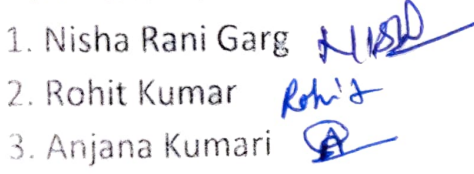 1. Nisha Rani Garg Nisha
2. Rohit Kumar Rohit
3. Anjana Kumari A